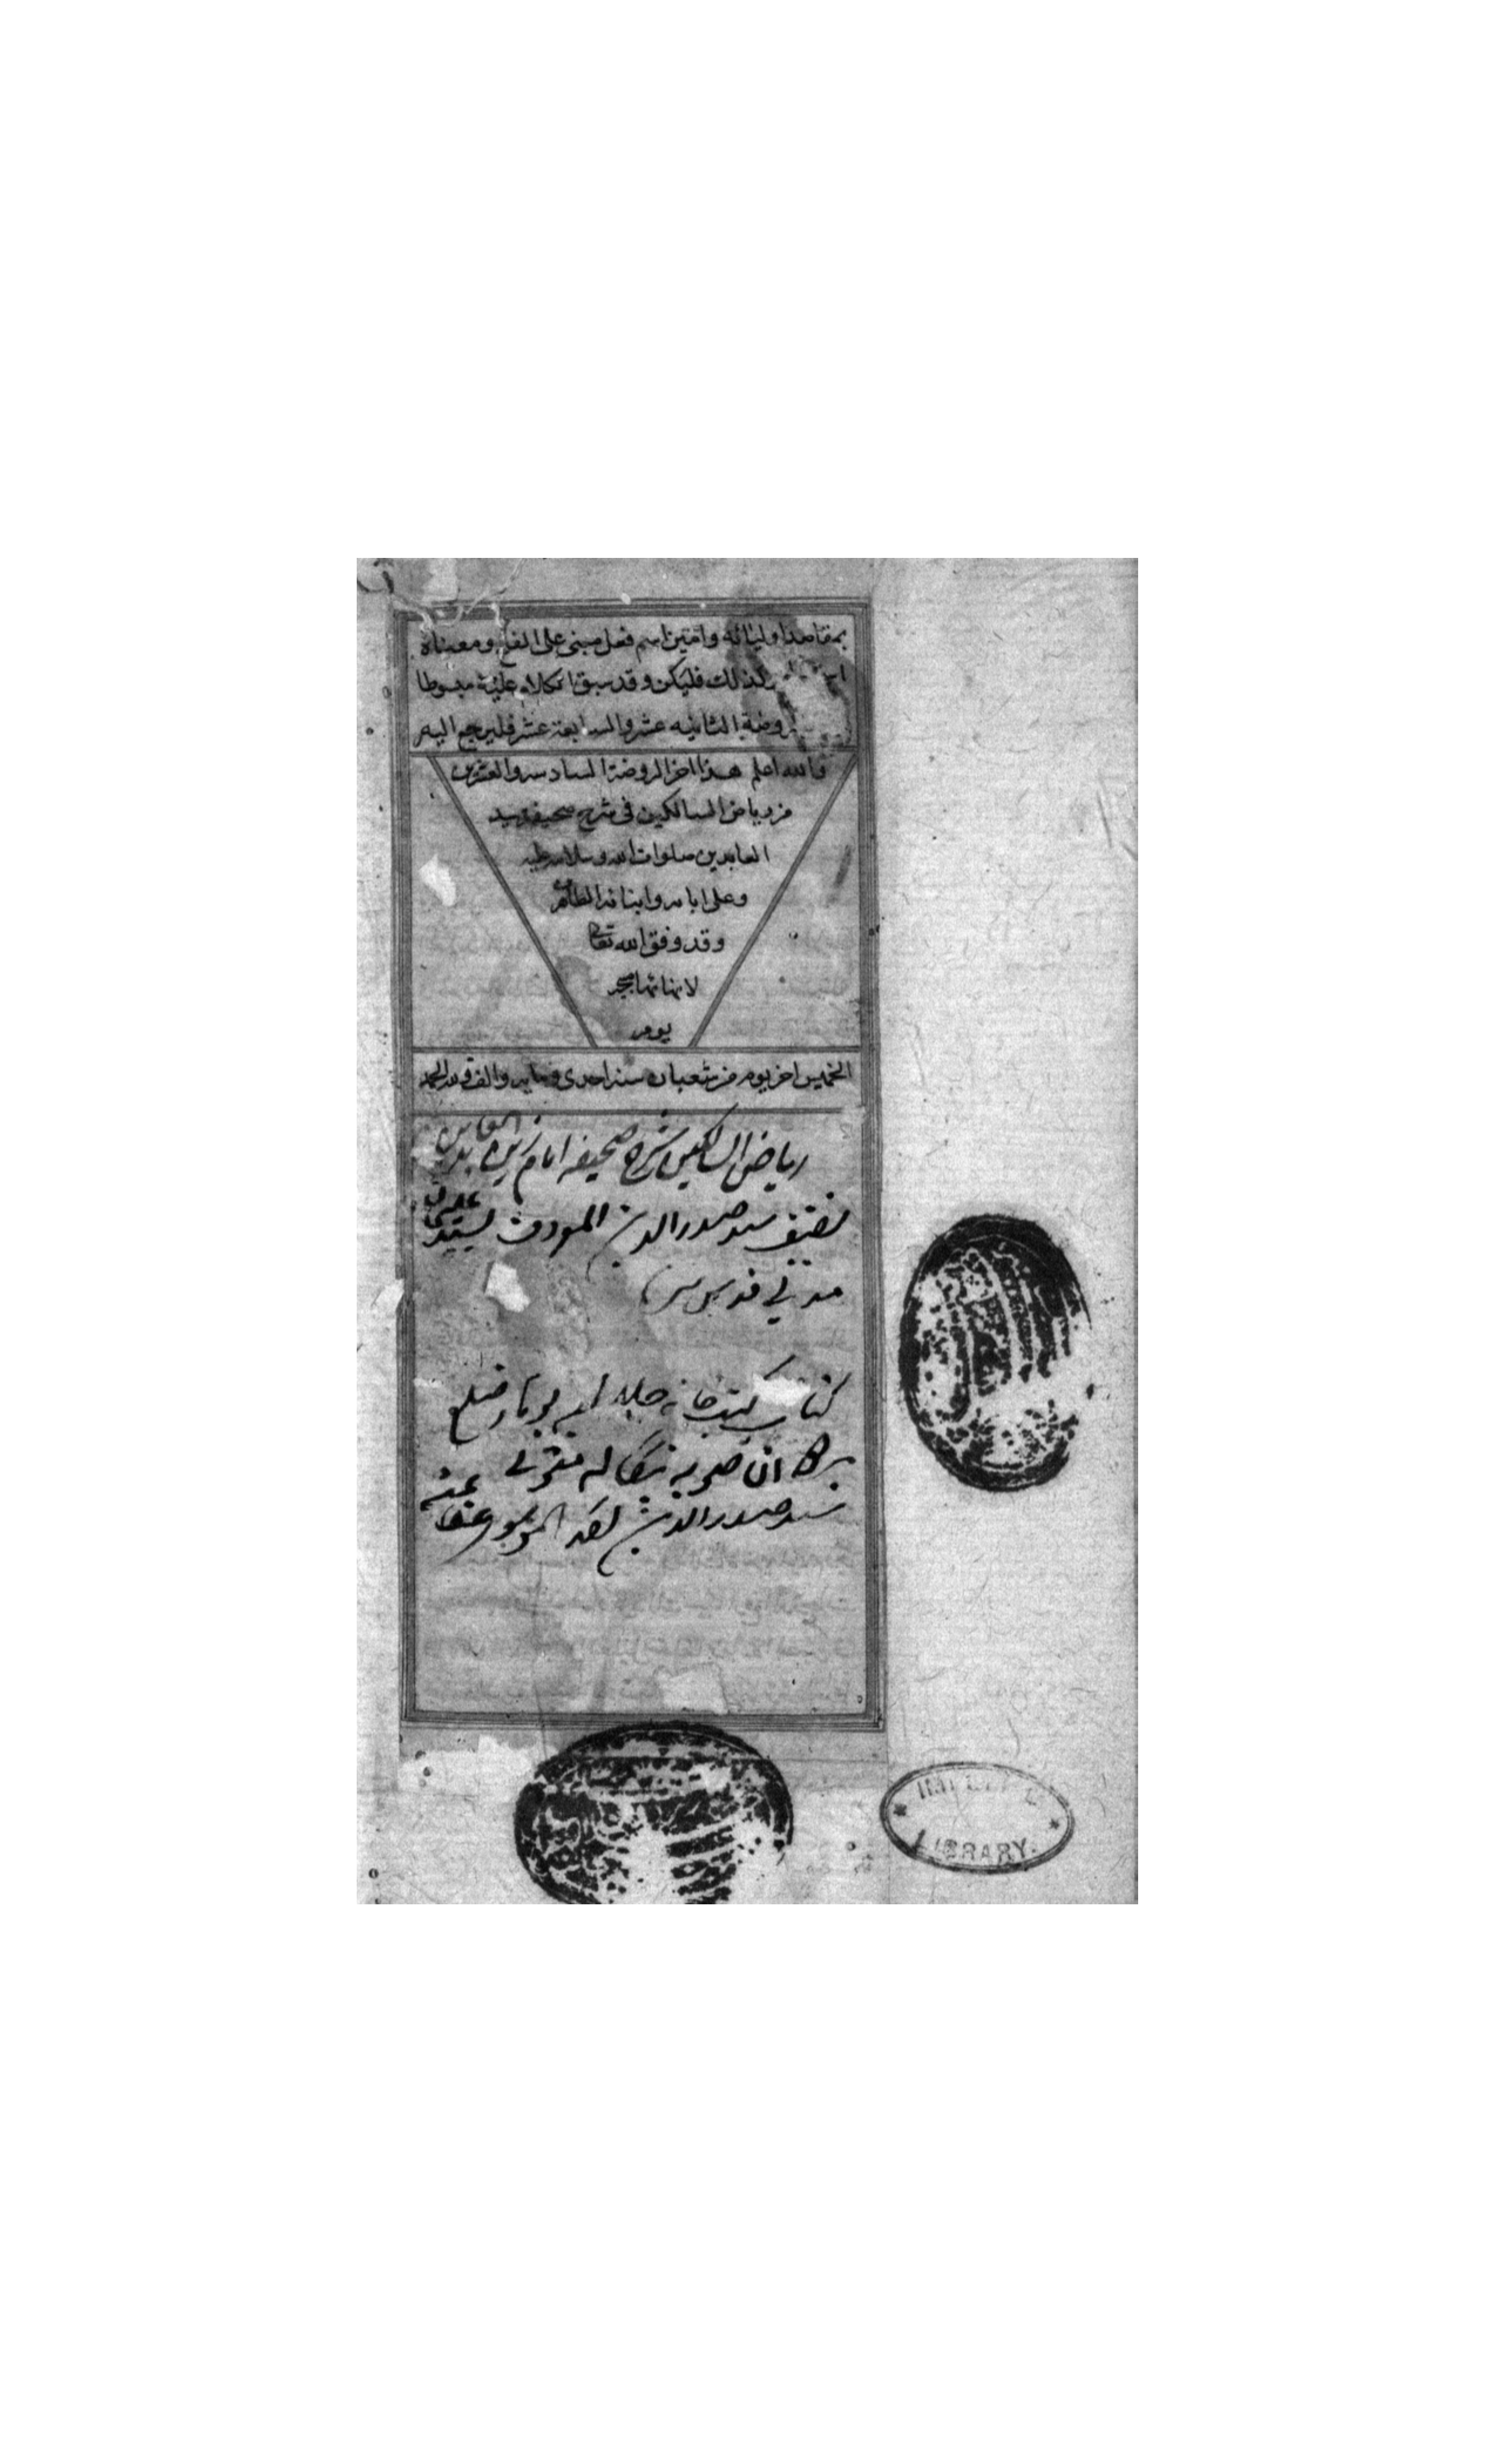 بمقاصد اوليائه وامين اسم فعل مبنى على الفتح ومعناه
كذلك فليكن وقد سبق الكلام عليه مبسوطا
روضة الثانيه عشر والسابعة عشر فليرجع اليه
والله اعلم هذا اخر الروضة السادسه والعشرين
من رياض السالكين فى شرح صحيفة سيد
العابدين صلوات الله وسلامه عليه
وعلى ابائه وابنائه الطاهرين
وقد وفق الله تعالى
لانهائها
يوم
الخميس اخر يوم من شعبان سنة احدى ومايه والف ولله الحمد
رياض السالكين شرح صحيفه امام زين العابدين
تصنيف سيد صدر الدين المعروف بسيد على
مدني قدس سره
كتاب كتب خانه جلاليه بوهار ضلع
بردوان صوبه بنگاله متولى
سيد صدر الدين احمد الموسوى عفى عنه
LIBRARY.